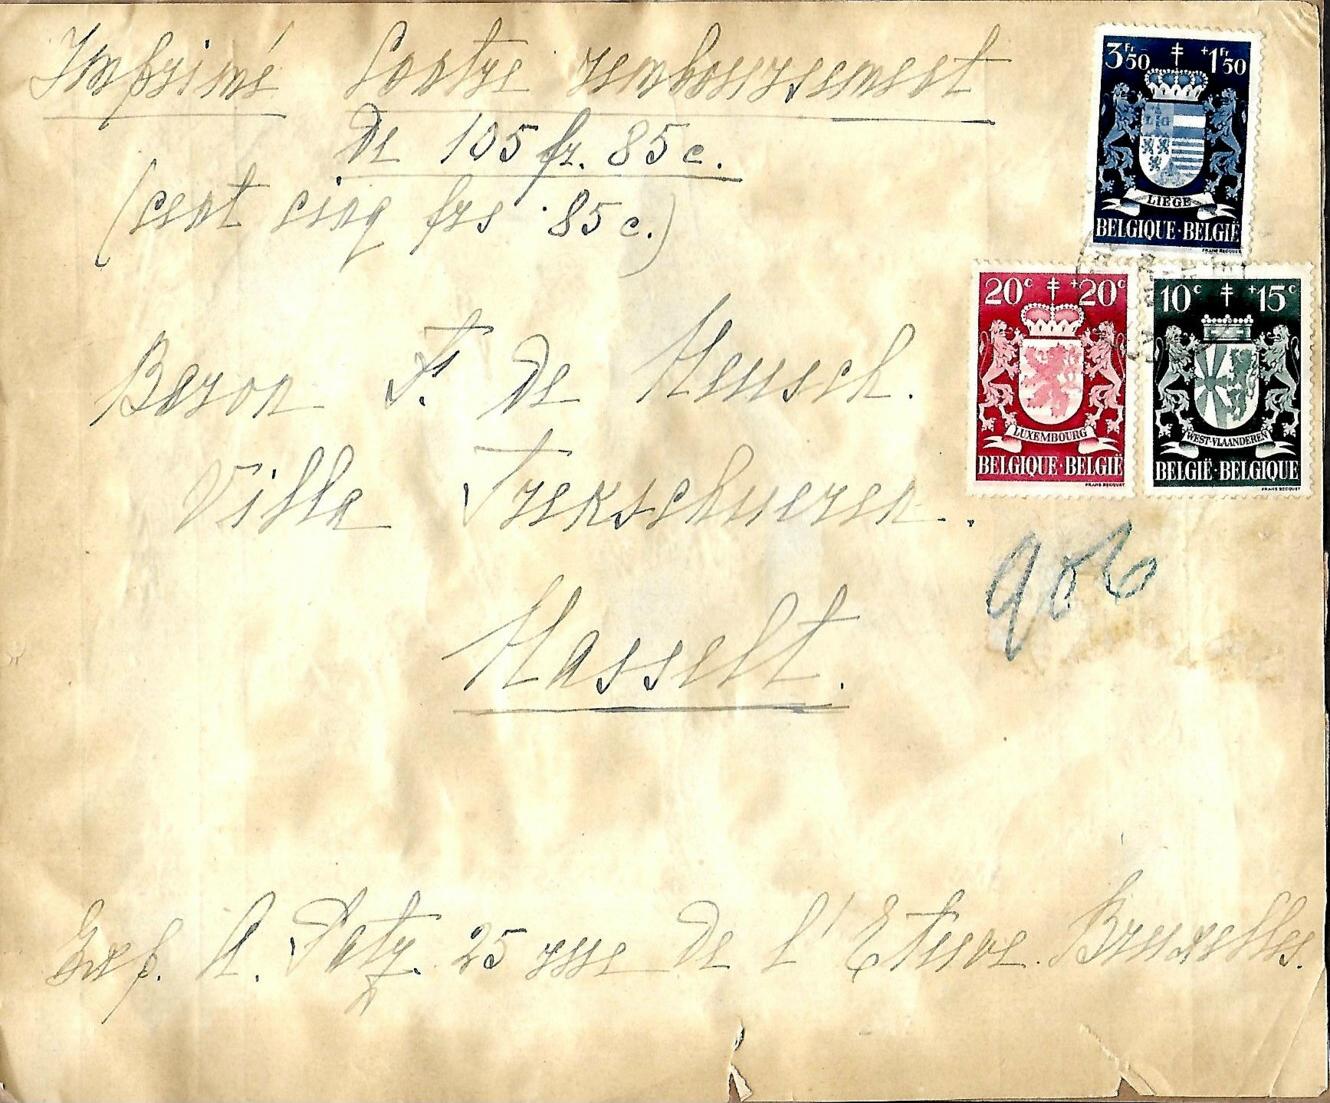 Imprimé Contre remboursement
de 105 fr. 85 c.
(cent cinq frs 85 c.)
3Fr50 +1Fr50
LIEGE
BELGIQUE·BELGIË
20c +20c
LUXEMBOURG
BELGIQUE·BELGIË
10c +15c
WEST-VLAANDEREN
BELGIË·BELGIQUE
Baron F. de Heusch.
Villa Trekschueren.
906
Hasselt.
Exp. A. Patz. 25 rue de l'Etuve. Bruxelles.